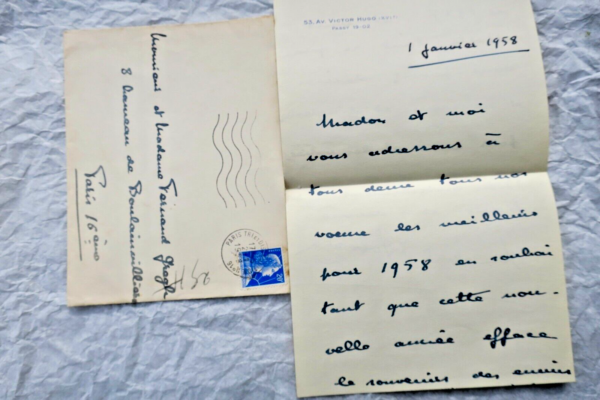 53, Av. Victor Hugo
1 janvier 1958
Madou et moi
vous adressons à
tous deux tous nos
voeux les meilleurs
pour 1958 en souhai
tant que cette nou-
velle année efface
le souvenirs des ennuis
Monsieur et Madame Fernand Gregh
8 hameau de Boulainvilliers
Paris 16ème
PARIS